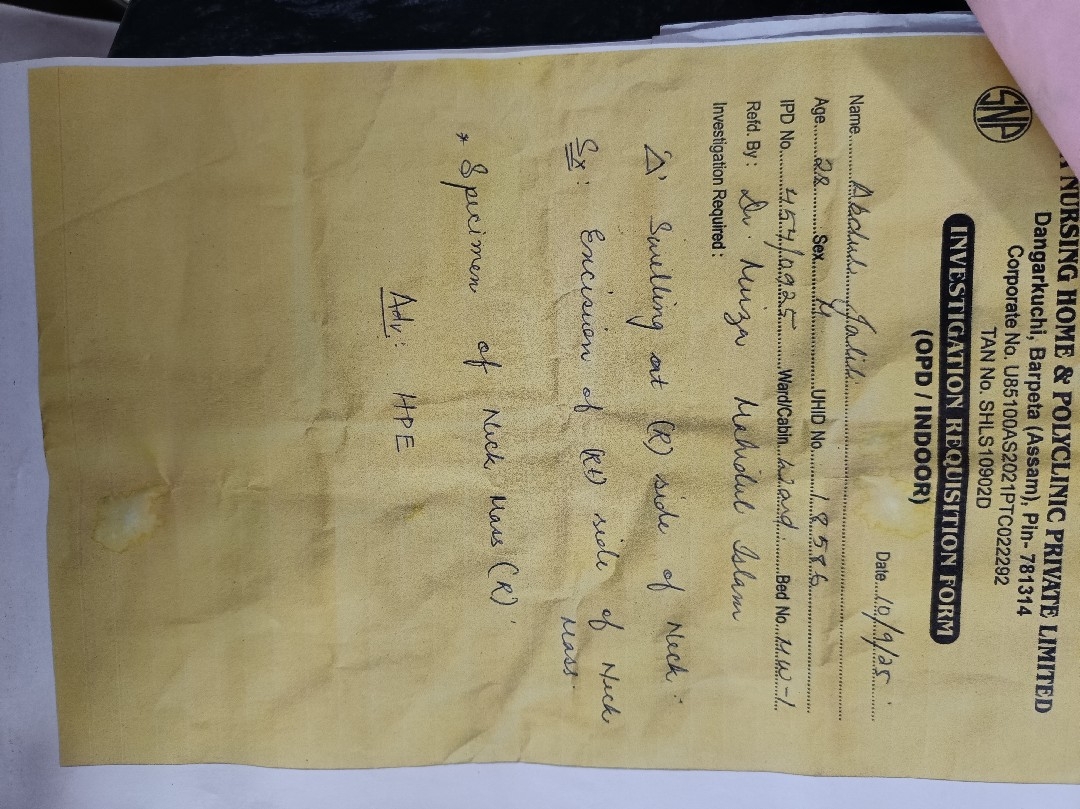 SNP
NURSING HOME & POLYCLINIC PRIVATE LIMITED
Dangarkuchi, Barpeta (Assam), Pin- 781314
Corporate No. U85100AS2021PTC022292
TAN No. SHLS10902D
INVESTIGATION REQUISITION FORM
(OPD / INDOOR)
Date...10/9/25
Name... Abdul Jalil
Age...28...Sex...M...UHID No...18586
IPD No...454/0925...Ward/Cabin...Ward...Bed No...MW-1
Refd. By : Dr. Mirza Mahidul Islam
Investigation Required :
Δ' Swelling at (R) side of Neck.
Sx : Excision of (R) side of Neck
Mass.
* Specimen of Neck Mass (R)
Adv : HPE